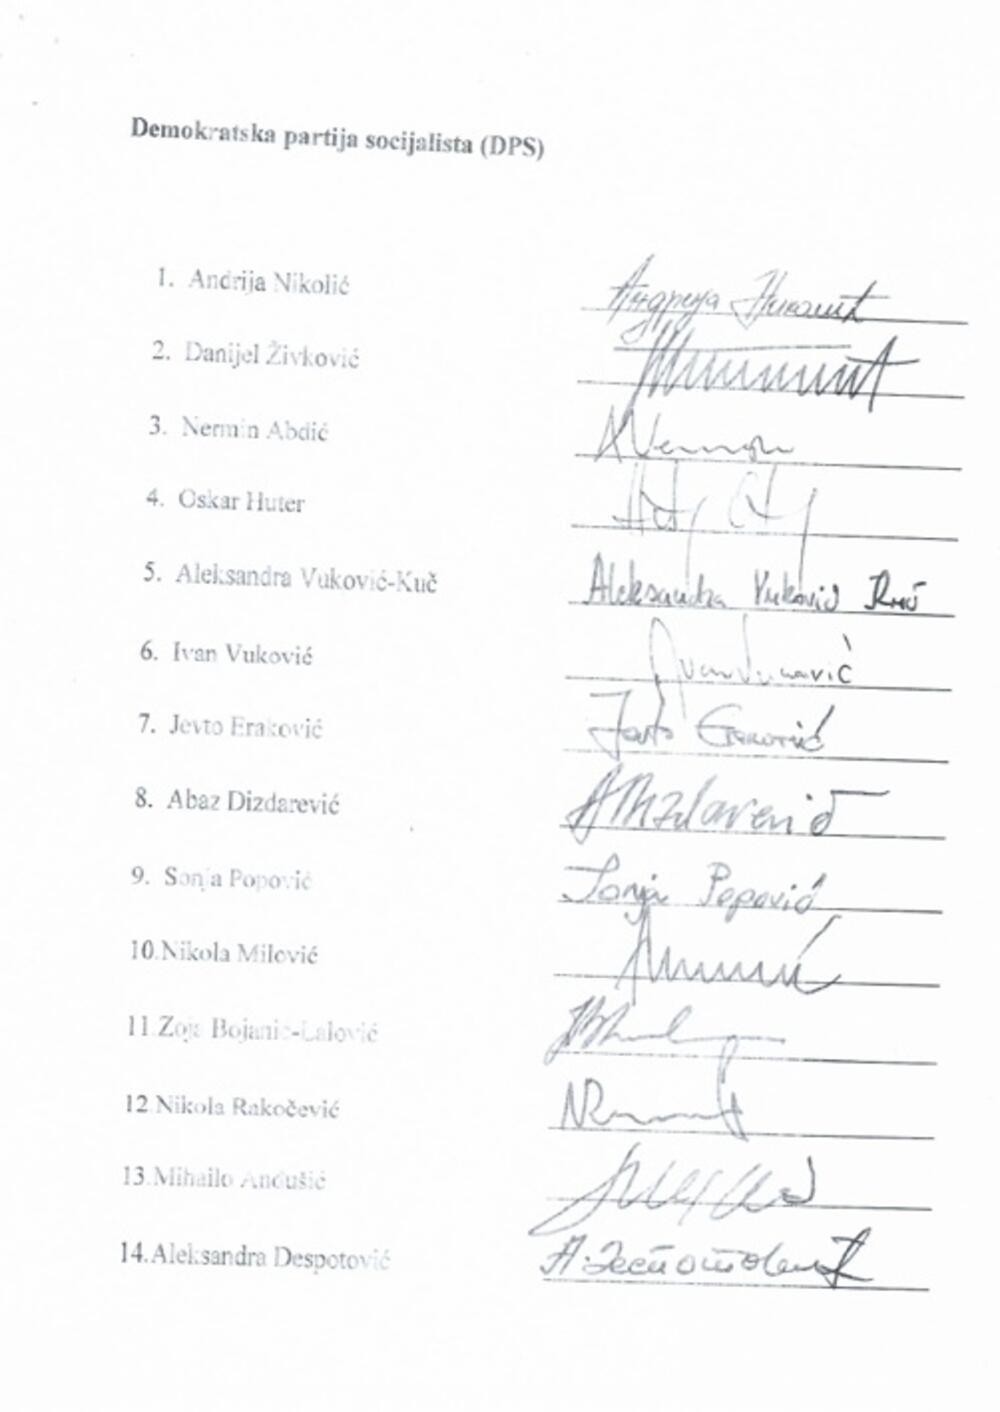 Demokratska partija socijalista (DPS)
1. Andrija Nikolić Андрија Николић
2. Danijel Živković
3. Nermin Abdić
4. Oskar Huter
5. Aleksandra Vuković-Kuč Aleksandra Vuković Kuč
6. Ivan Vuković Ivan Vuković
7. Jevto Eraković Jevto Eraković
8. Abaz Dizdarević ADizdarević
9. Sonja Popović Sonja Popović
10.Nikola Milović
11.Zoja Bojanić-Lalović
12.Nikola Rakočević
13.Mihailo Anđušić
14.Aleksandra Despotović А. Деспотовић